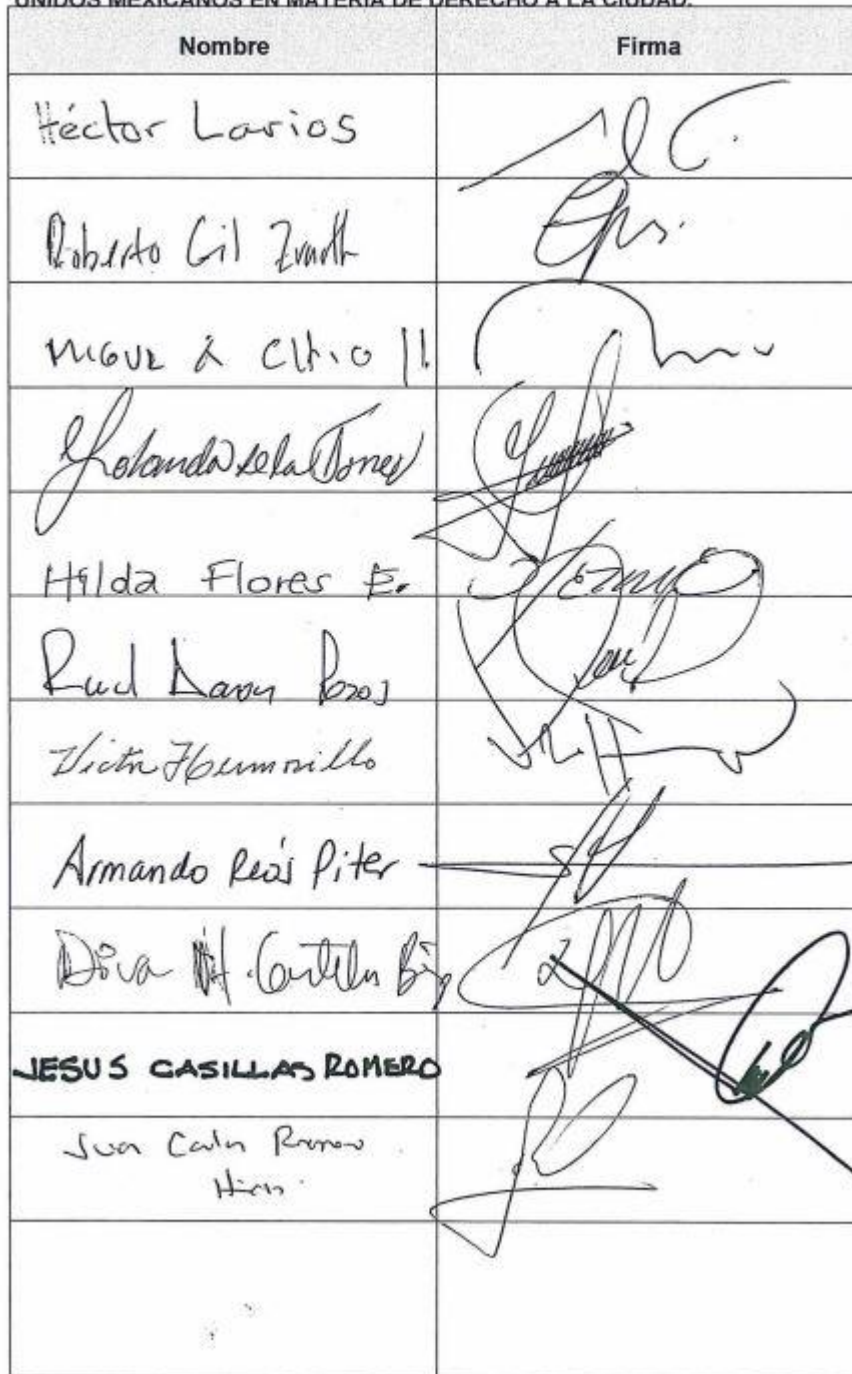 UNIDOS MEXICANOS EN MATERIA DE DERECHO A LA CIUDAD.
Nombre Firma
Héctor Larios
Roberto Gil Zuarth
Yolanda de la Torre
Hilda Flores E.
Raul Pozos
Victor Hermosillo
Armando Ríos Piter
Diva
JESUS CASILLAS ROMERO
Juan Carlos Romero
Hicks